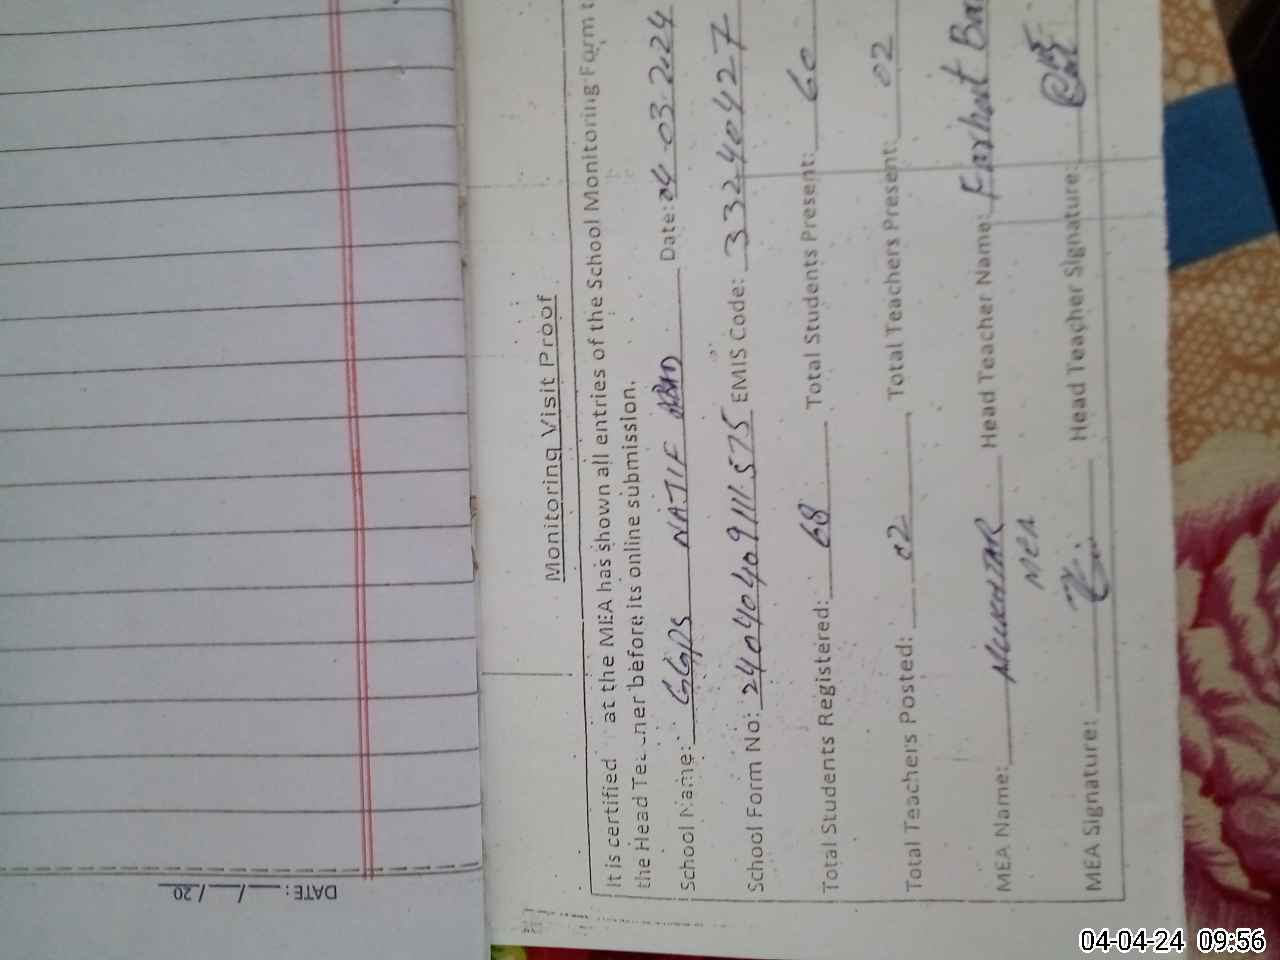 Monitoring Visit Proof
It is certified at the MEA has shown all entries of the School Monitoring Form t
the Head Te ner before its online submission.
School Name: GGPS NAJIF ABAD Date: 04-03-2024
School Form No: 240404091111575 EMIS Code: 33240427
Total Students Registered: 68 Total Students Present: 60
Total Teachers Posted: 02, Total Teachers Present: 02
MEA Name: MUKHTAR Head Teacher Name: Farhat Ba
MEA
MEA Signature: Head Teacher Signature:
DATE: / / 20
04-04-24 09:56